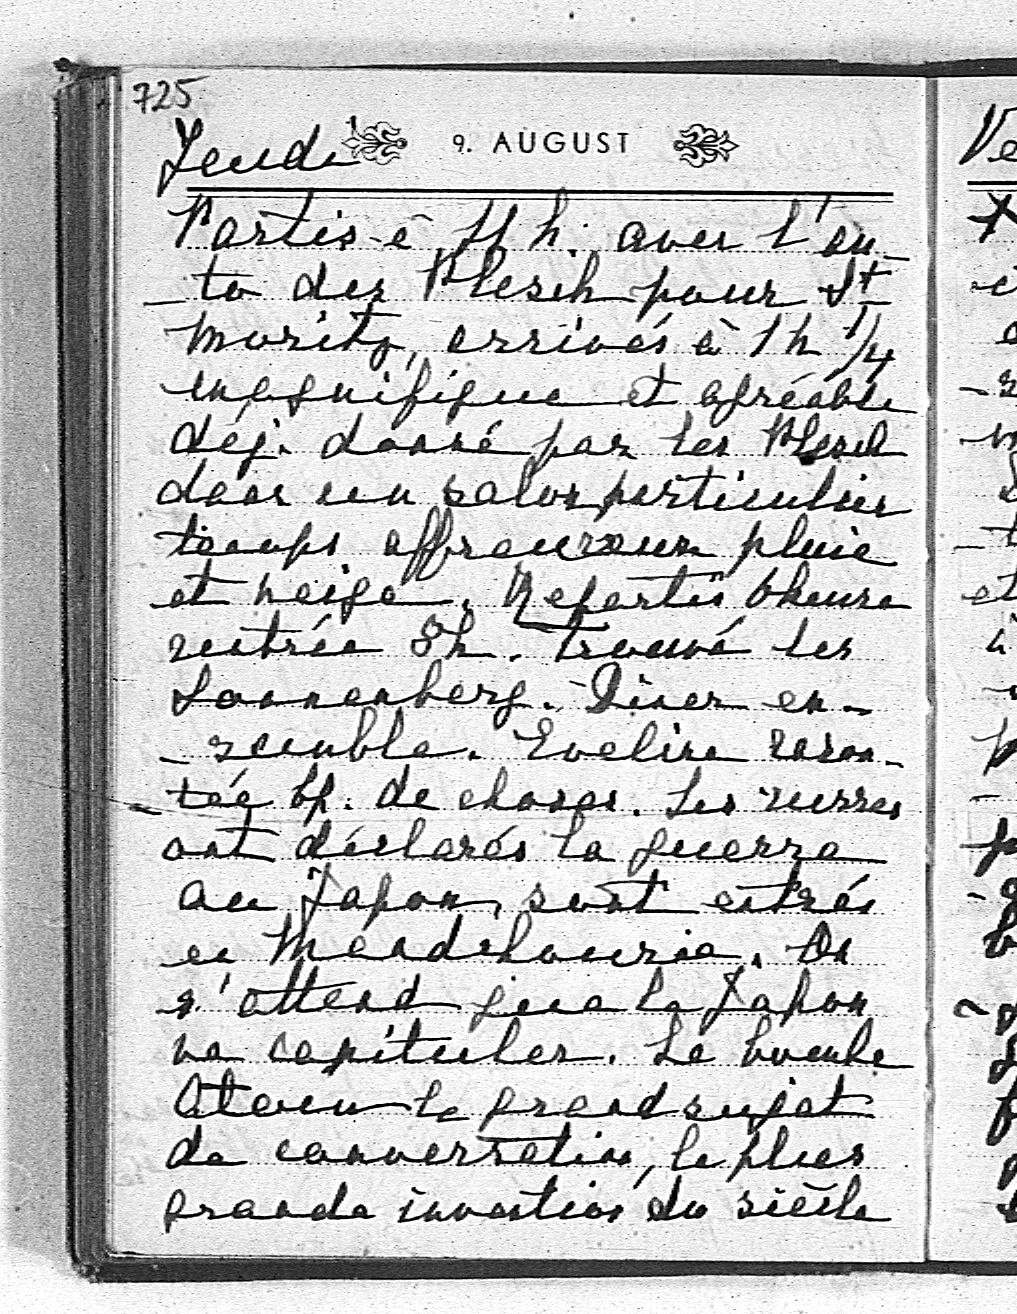 725
Jeudi
9. AUGUST
Partis à 11 h. avec l'au-
to des Plesch pour St
Moritz, arrivés à 1h 1/4
magnifique et agréable
déj. donné par les Plesch
dans un salon particulier
temps affreux pluie
et neige. Repartis 6 heures
rentrée 8h. trouvé les
Sonnenberg. Diner en-
semble. Eveline racon-
tée bp. de choses. Les russes
ont déclarés la guerre
au Japon, sont entrés
en Mandchourie. On
s'attend que le Japon
va capituler. La bombe
Atom le grand sujet
de conversation, la plus
grande invention du siècle
Ve